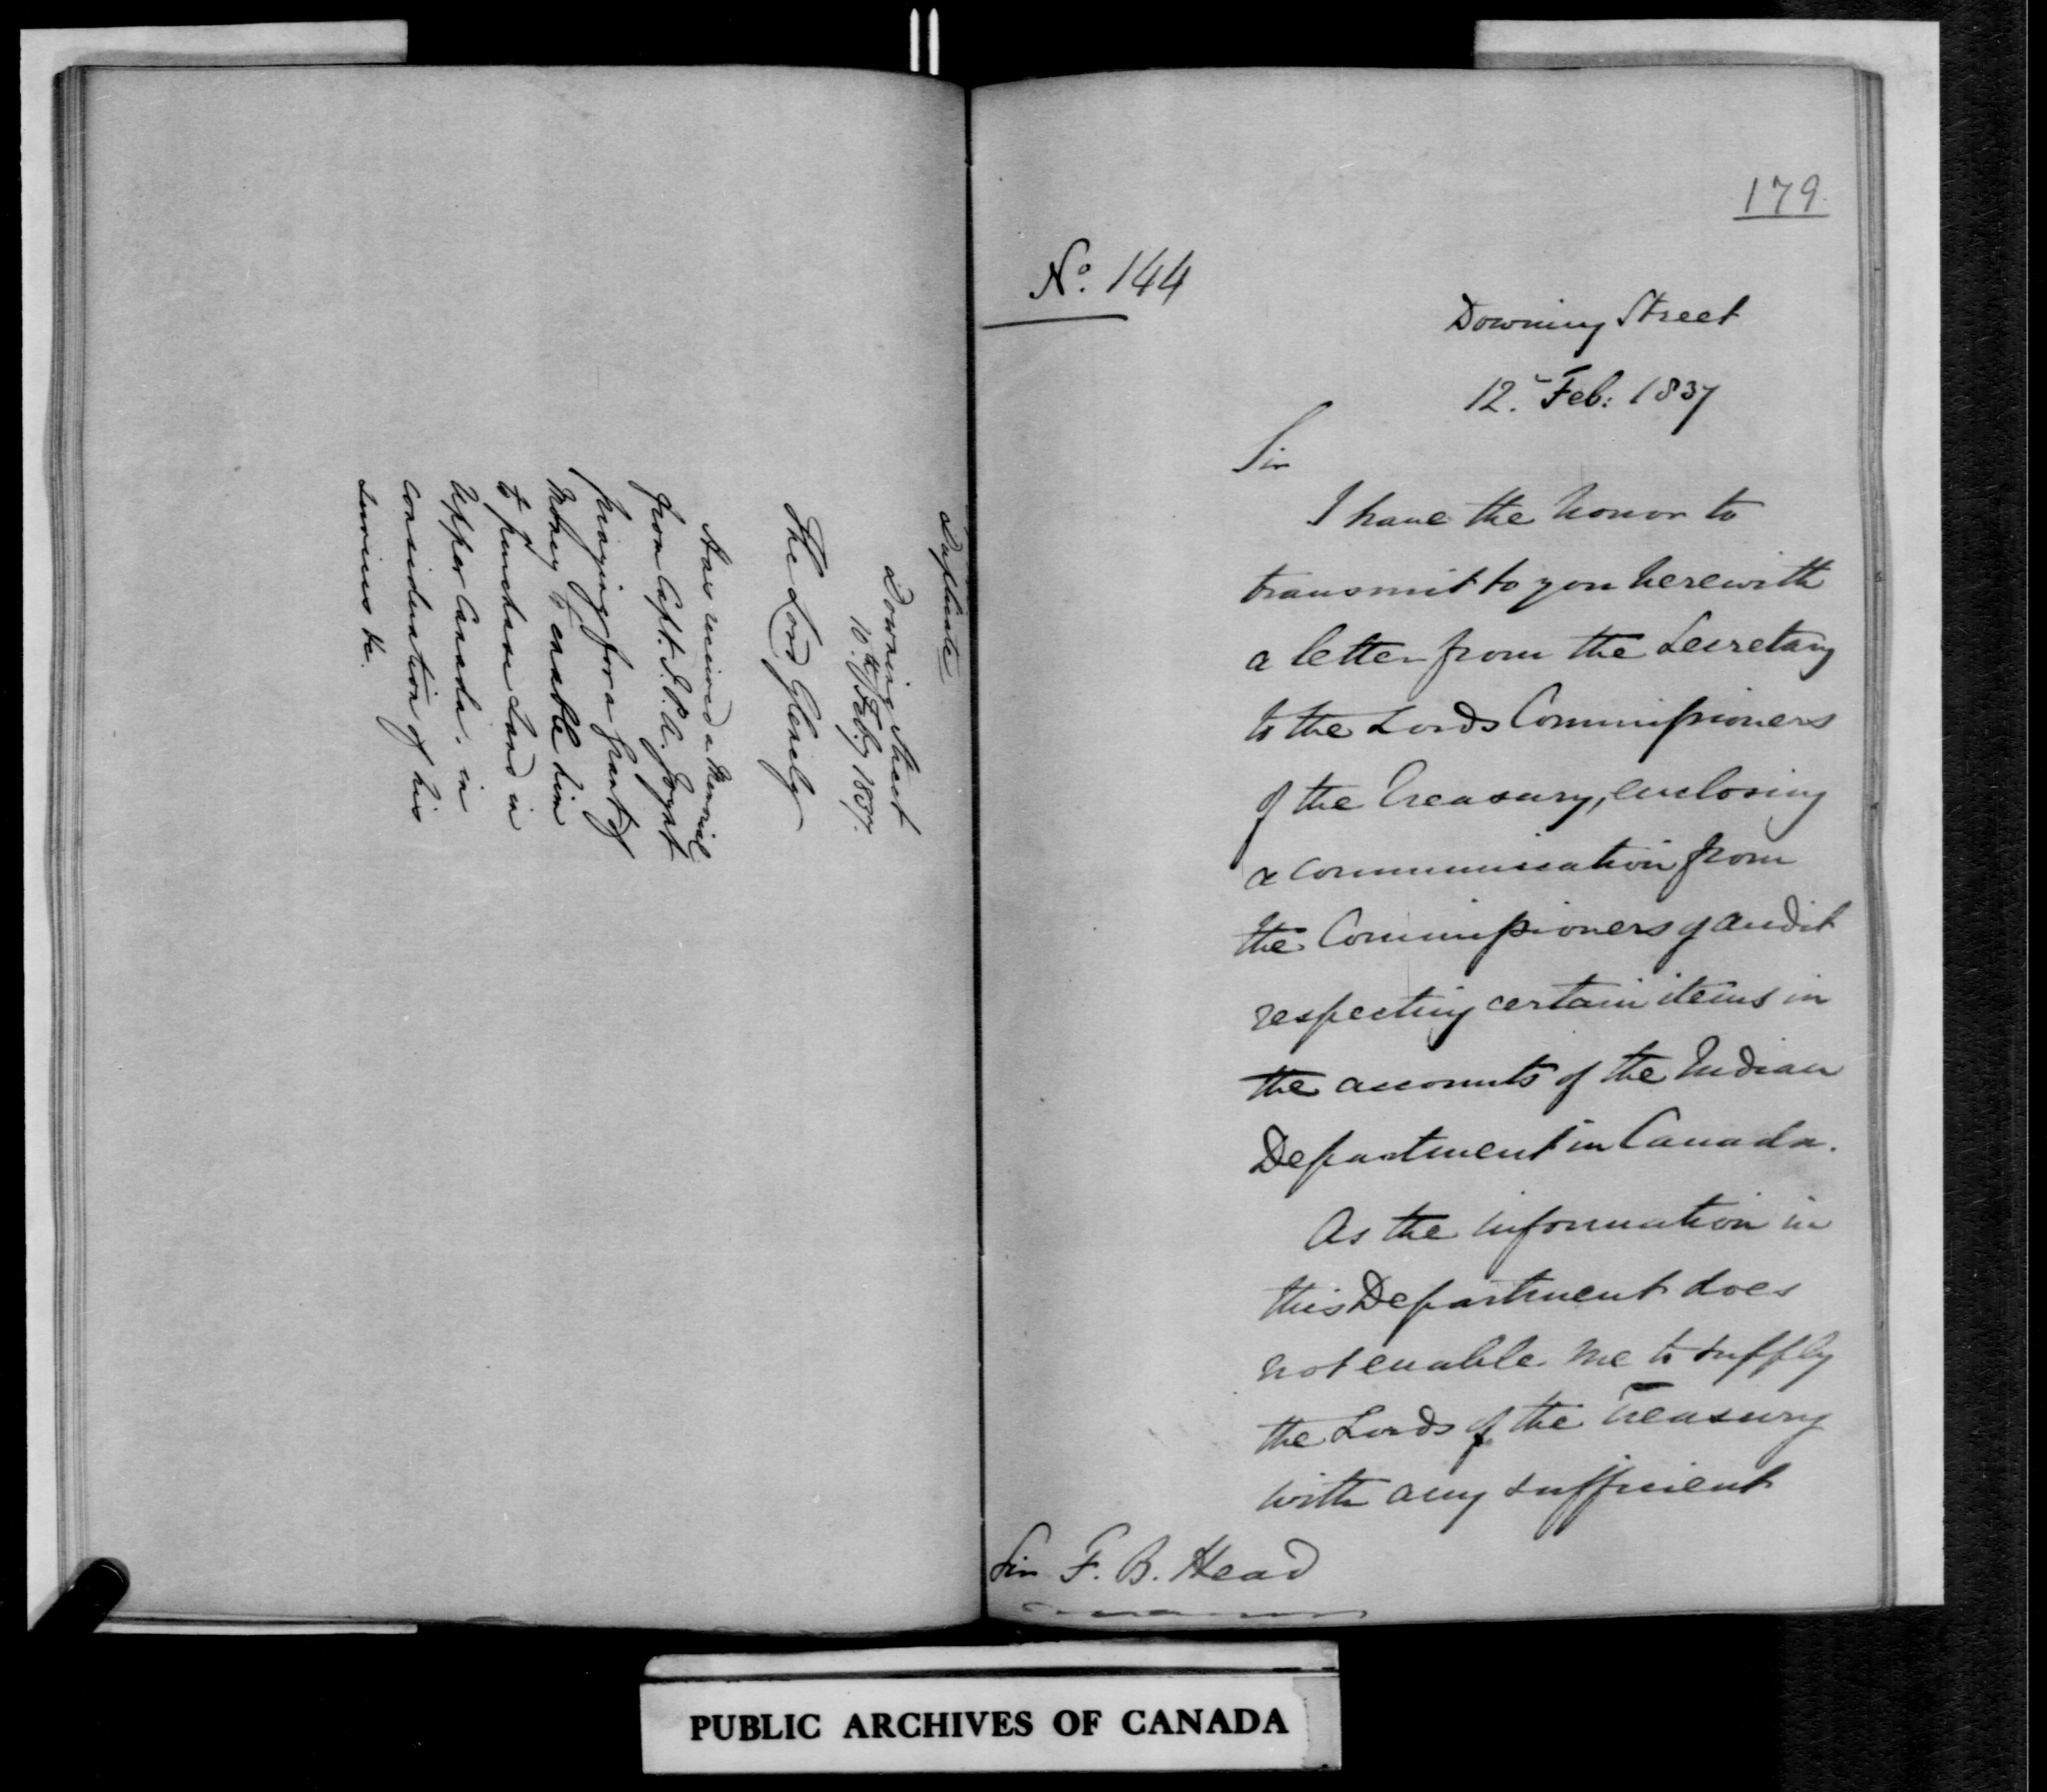 Duplicate
Downing Street
10th Feby 1837.
The Lord Glenelg
Has received a Memorial
from Capt. J. P. A.
praying for a grant of
Money to enable him
to purchase Land in
Upper Canada, in
consideration of his
Services &c.
179.
No. 144
Downing Street
12. Feb: 1837
Sir
I have the honor to
transmit to you herewith
a letter from the Secretary
to the Lords Commissioners
of the Treasury, enclosing
a communication from
the Commissioners of Audit
respecting certain items in
the accounts of the Indian
Department in Canada.
As the information in
this Department does
not enable me to supply
the Lords of the Treasury
with any sufficient
Sir F. B. Head
PUBLIC ARCHIVES OF CANADA